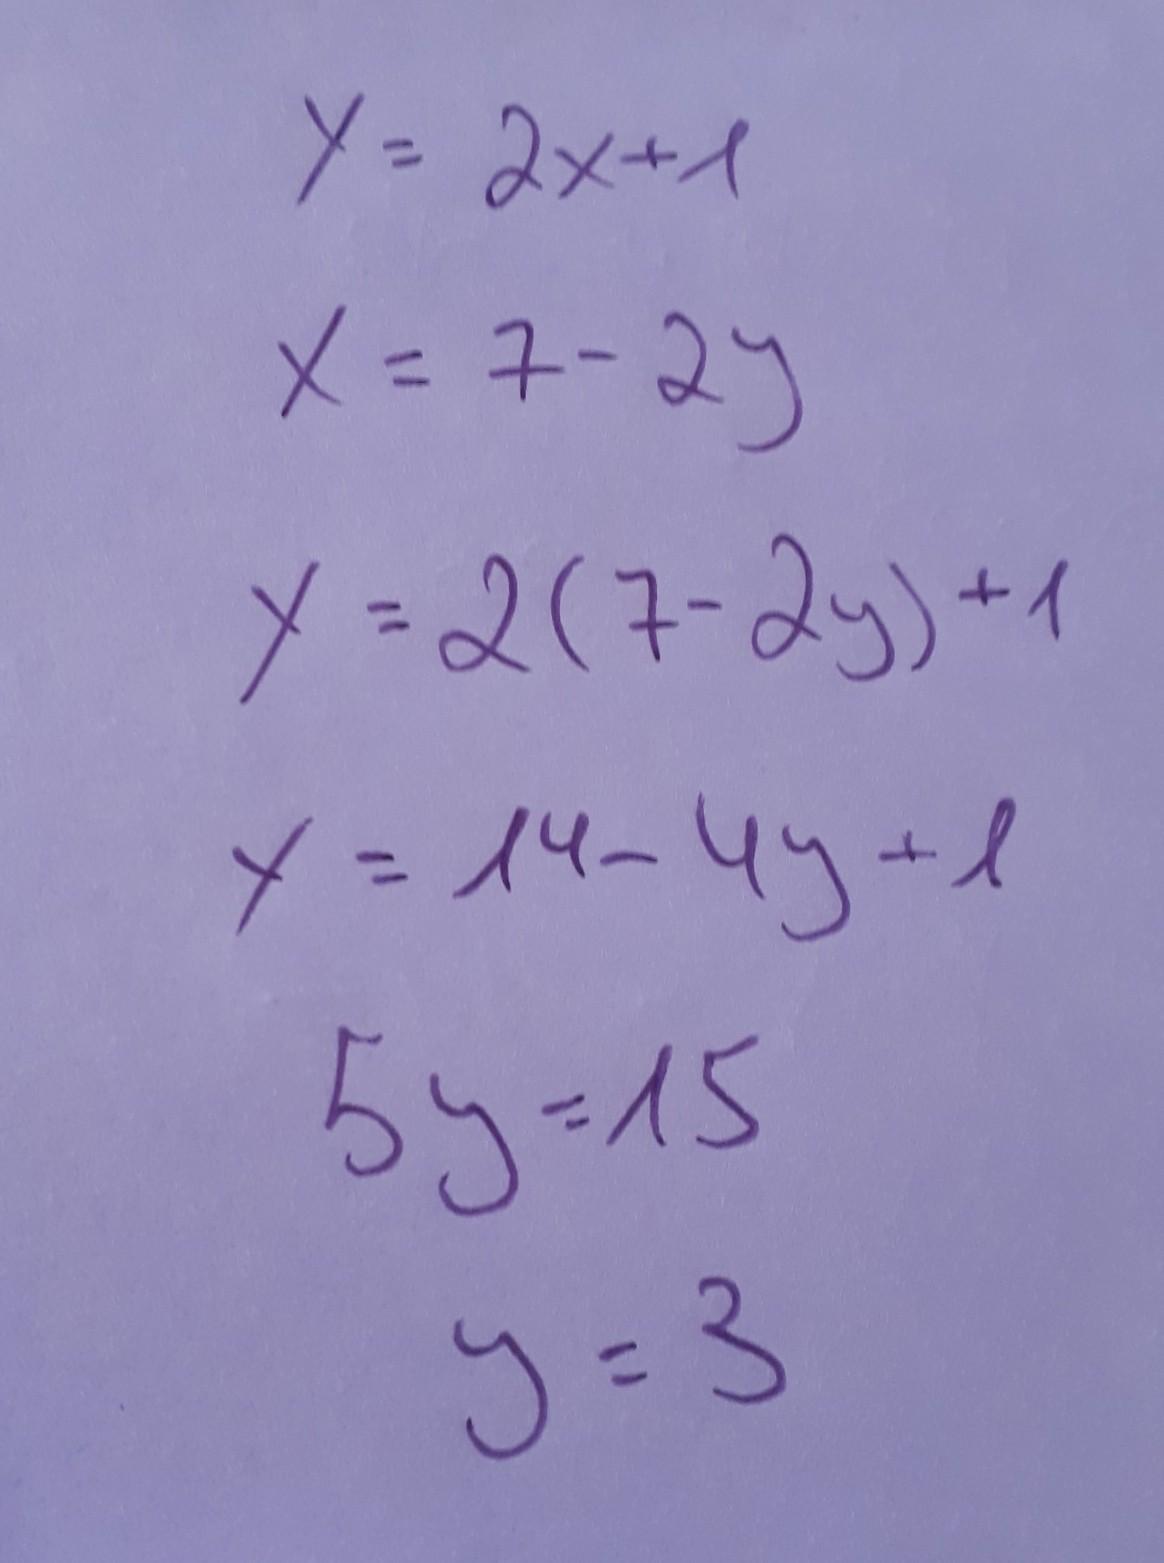 y = 2x+1
x = 7-2y
y = 2(7-2y)+1
y = 14-4y+1
5y=15
y = 3